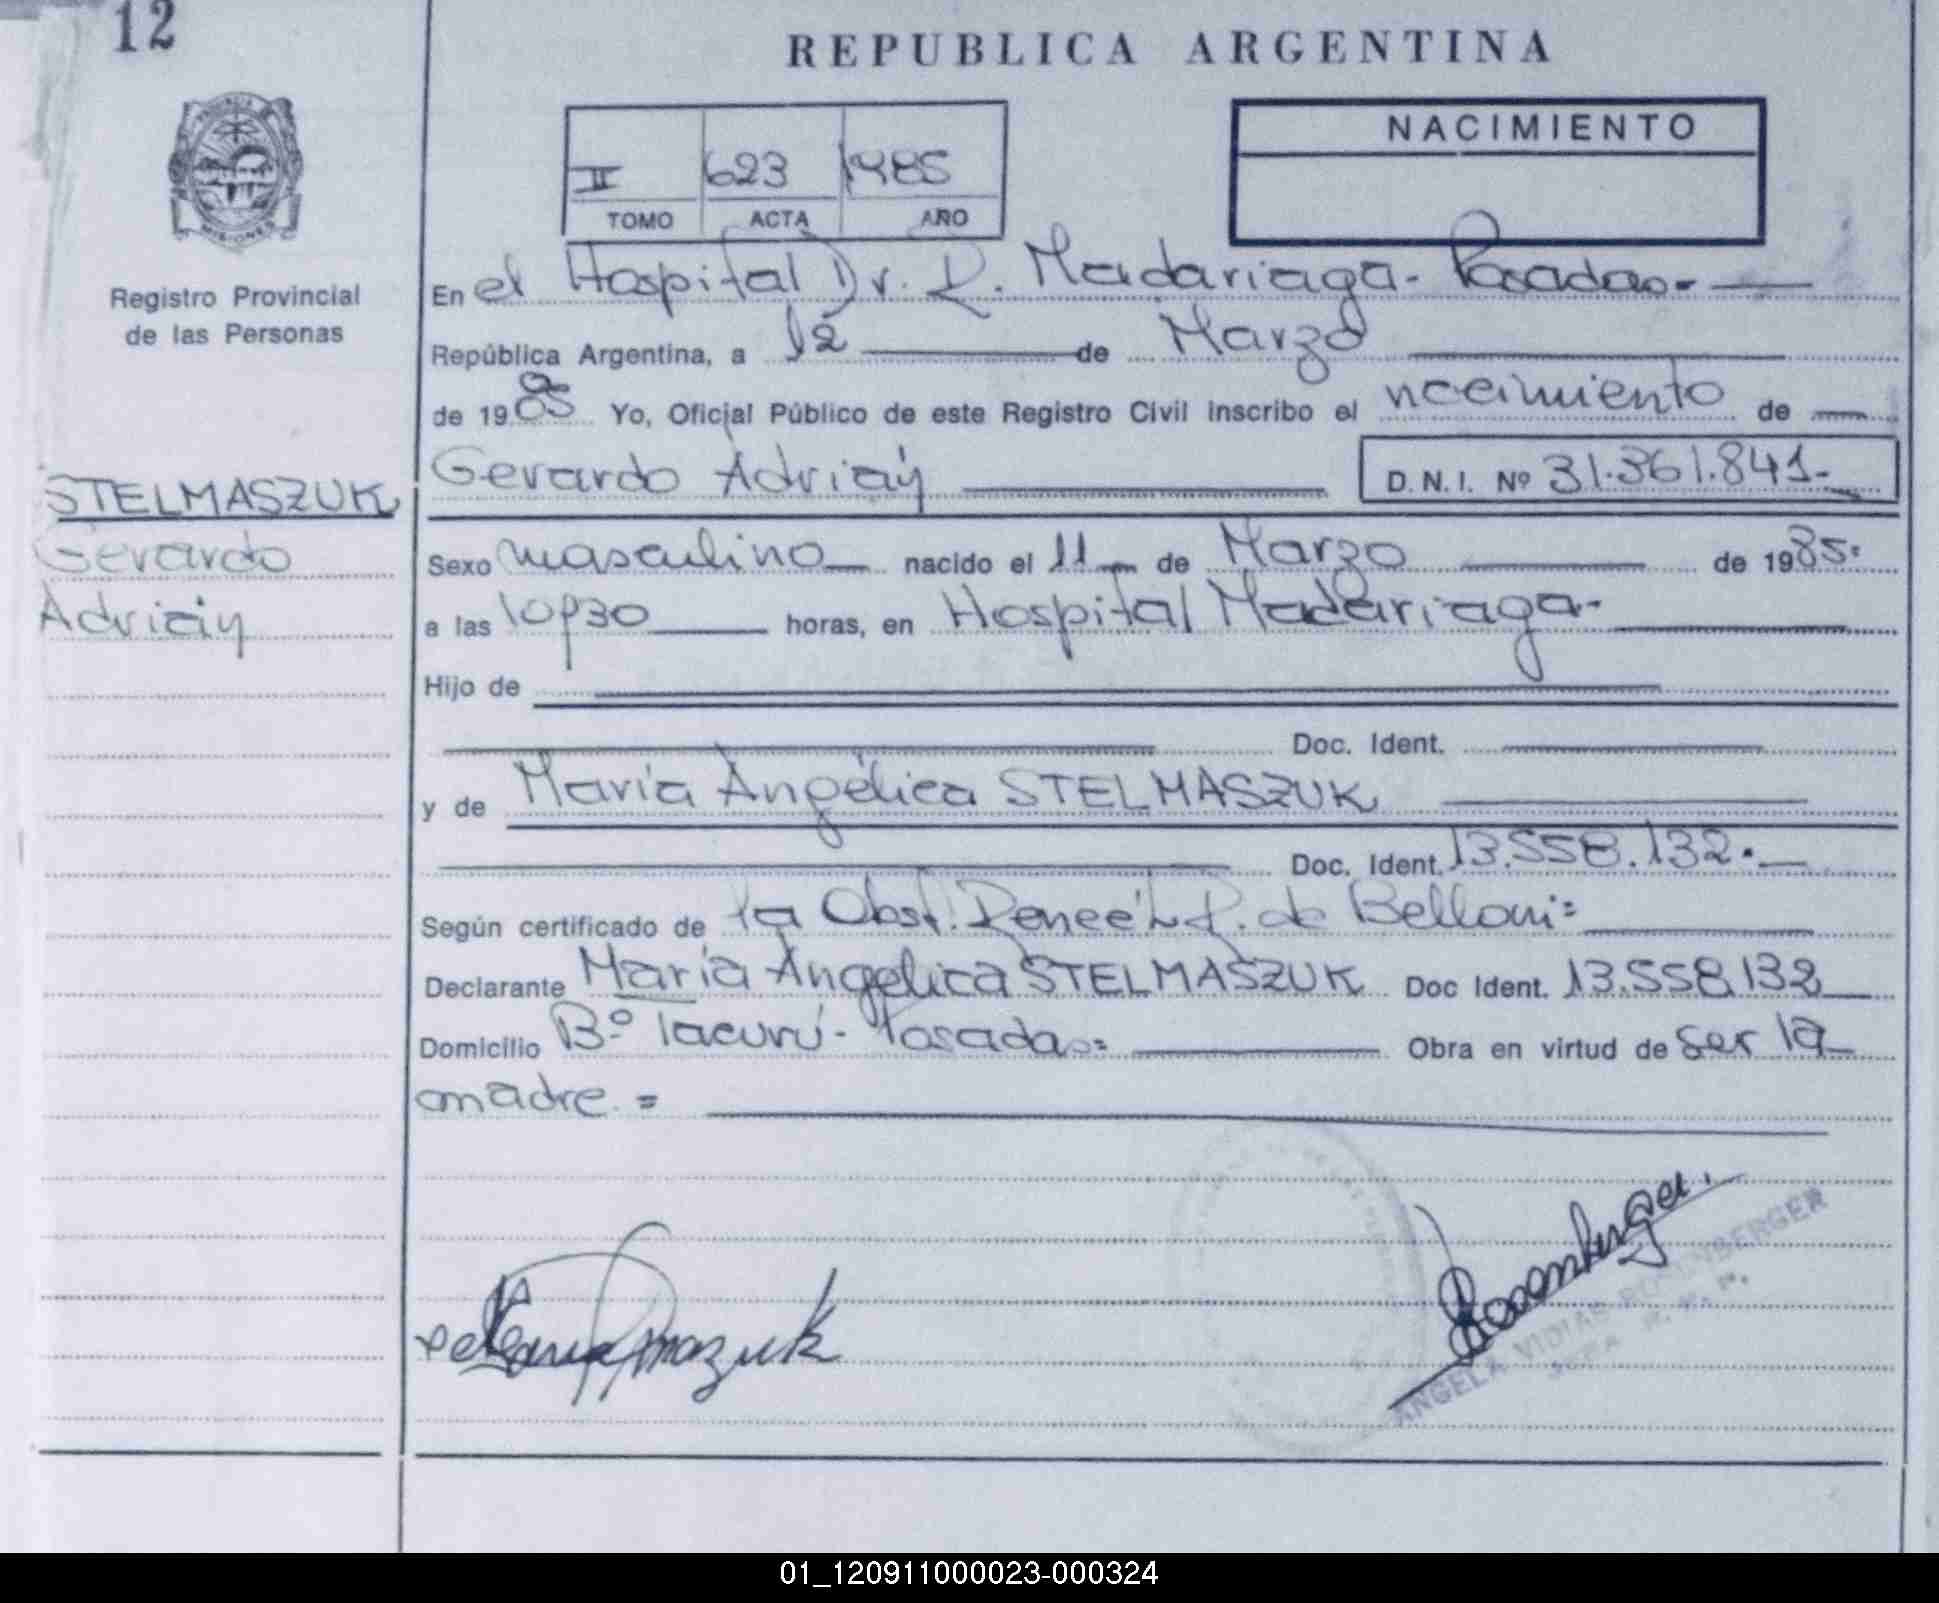 12
REPUBLICA ARGENTINA
NACIMIENTO
II 623 1985
TOMO ACTA AÑO
MISIONES
Registro Provincial
de las Personas
En el Hospital Dr. R. Madariaga - Posadas.-
República Argentina, a 12 de Marzo
de 1985 Yo, Oficial Público de este Registro Civil inscribo el nacimiento de
Gerardo Adrián D.N.I. Nº 31.361.841-
STELMASZUK
Gerardo
Adrián
Sexo masculino nacido el 11 de Marzo de 1985=
a las 10,30 horas, en Hospital Madariaga-
Hijo de
Doc. Ident.
y de María Angélica STELMASZUK
Doc. Ident. 13.558.132.-
Según certificado de la Obst. Reneé L. R. de Belloni=
Declarante María Angélica STELMASZUK Doc Ident. 13.558.132
Domicilio Bº Tacurú - Posadas= Obra en virtud de ser la
madre. =
ANGELA ROSENBERGER
01_120911000023-000324